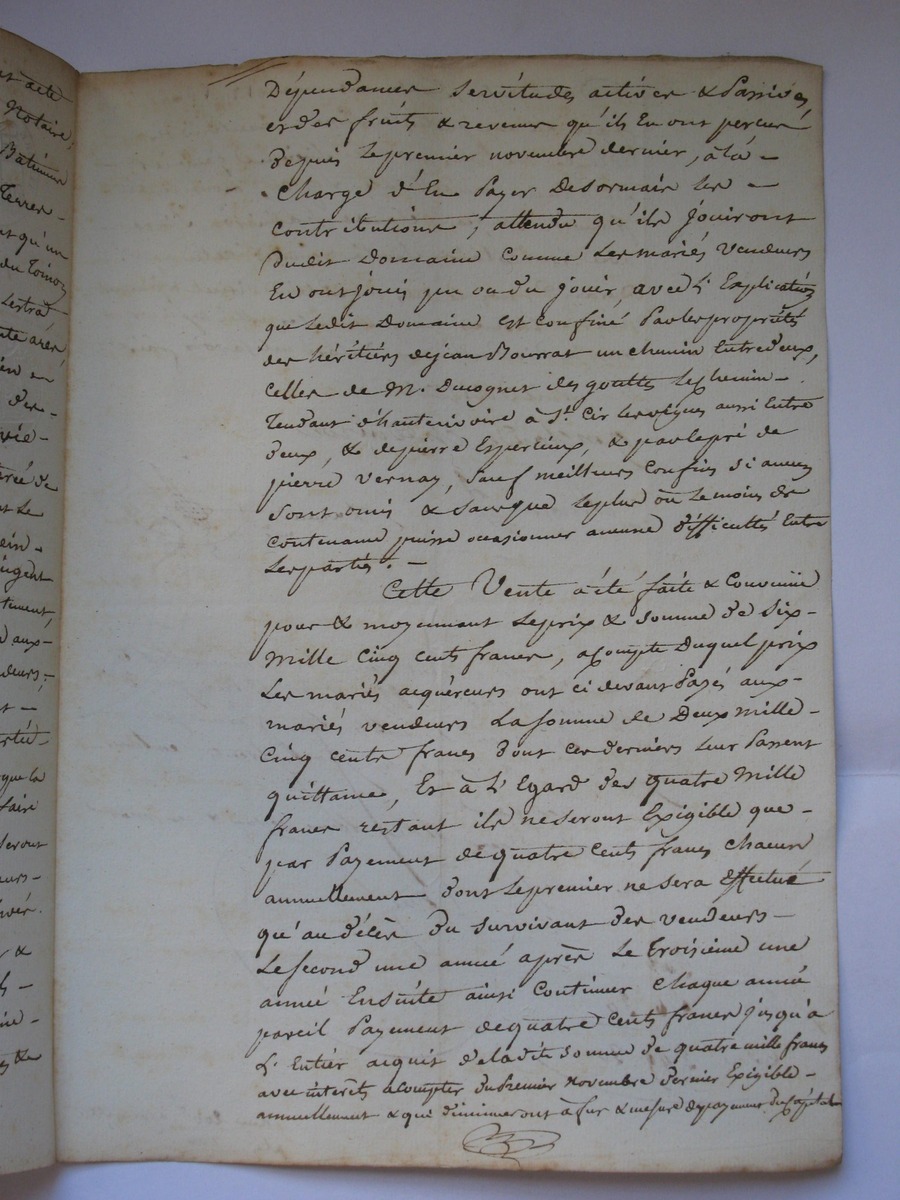 Dépendances servitudes actives & Passives,
et des fruits & revenus qu'ils En ont percus
depuis le premier novembre dernier, à la -
Charge d'En Payer Desormais les -
contributions, attendu qu'ils jouiront
dudit Domaine comme les mariés Vendeurs
En ont joui pu ou du jouir, avec L'Explication
que ledit Domaine est confiné Par les propriétés
des héritiers de jean Bourrat un chemin Entredeux,
celles de M. Ducognet des gouttes le chemin -
Tendant d'hauterivoire à St. Cir les vignes aussi Entre
deux, & de pierre Esperieux, & par le pré de
pierre Vernay, sauf meilleurs confins si aucuns
sont omis & sans que le plus ou le moins de
contenance puisse occasionner aucune difficultés Entre
les parties. -
Cette Vente a été faite & Convenüe
pour & moyennant le prix & somme de Six -
Mille Cinq cents francs, a compte Duquel prix
Les mariés acquéreurs ont ci devant Payés aux -
mariés vendeurs La somme de Deux mille -
Cinq cents francs dont ces derniers leur Passent
quittance, Et à L'Egard des quatre Mille
francs restant ils ne seront Exigible que -
par Payement de quatre cents francs chacun
annuellement dont le premier ne sera effectué
qu'au décès du survivant des vendeurs -
Le second une année après Le Troisième une
année Ensuite ainsi Continuer chaque année
pareil Payement de quatre Cents francs jusqu'à
L'Entier acquit de la dite somme de quatre mille francs
avec interets a compter du Premier novembre dernier Exigible -
annuellement & qui diminueront à fur & mesure des payemens du capital